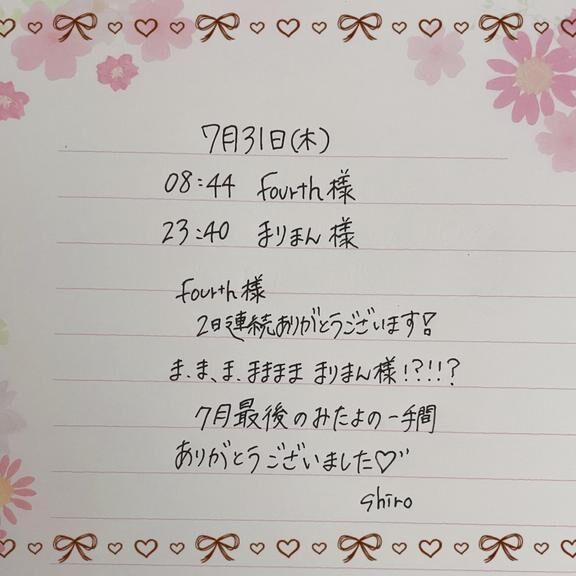 7月31日(木)
08:44 fourth様
23:40 まりまん様
fourth様
2日連続ありがとうございます!
ま、ま、ま、ままま まりまん様!?!!?
7月最後のみたよの一手間
ありがとうございました♡"
shiro